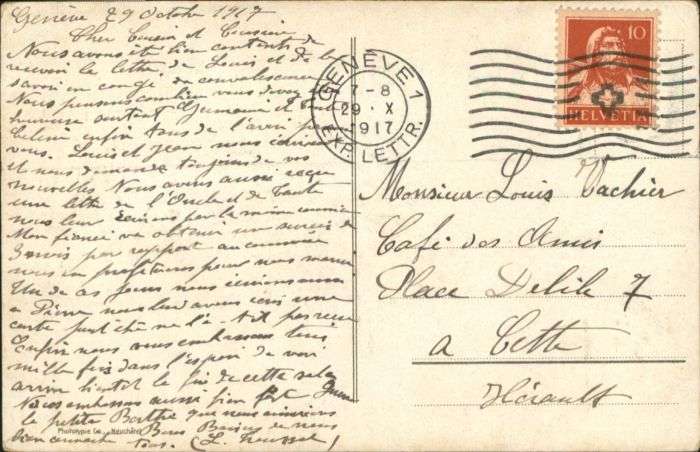 Genève 29 Octobre 1917
Cher Cousin et Cousine
Nous avons été bien contents de
recevoir la lettre de Louis et de le
savoir en congé de convalescence
Nous pensons combien vous devez être
heureuse surtout Germaine et
Célina enfin tous de l'avoir près
vous. Louis et Jean nous écrivent
et nous demande toujours de vos
nouvelles Nous avons aussi reçu
une lettre de l'Oncle et de Tante
nous leur écrivons par le même courrier
Mon fiancé va obtenir un sursis de
3 mois par rapport au commerce
nous en profiterons pour nous marier
Un de ces jours nous écrirons aussi
a Pierre nous lui avons écris une
carte peut être ne l'a-t-il pas reçue
Enfin nous vous embrassons tous
mille fois dans l'espoir de voir
arriver bientôt la fin de cette
Nous embrassons aussi bien fort
la petite Berthe que nous aimerions
bien connaître Bons Baisers de nous
tous. (L.
Phototypie Co., Neuchâtel
GENÈVE 1
7-8
29 . X
1917
EXP. LETTR.
10
HELVETIA
Monsieur Louis Vachier
Café des Amis
Place Delile 7
a Cette
Hérault